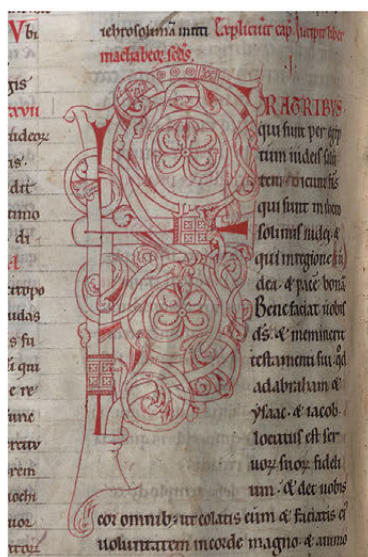 Vbi
gis
ıudeoꝝ
dıt
di
topo
udas
qui
re
orem
ıehrosolimā mıtti Expliciūt cap̄. Incipit liber
machabeoꝝ scd̄s.
FRATRIBUS
qui sunt per egıp
tum iudeis salu
tem dicunt fr̄s
qui sunt in iero
solimis iudei ⁊
qui in regione iu
dea ⁊ pacē bonā
Benefaciat uobis
d̄s ⁊ meminerit
testamenti sui qd̄
ad abraham ⁊
ysaac ⁊ iacob
locutus est ser
uoꝝ suoꝝ fideli
um ⁊ det uobis
cor omnib; ut colatis eum ⁊ faciatis ei
uoluntatem in corde magno ⁊ animo